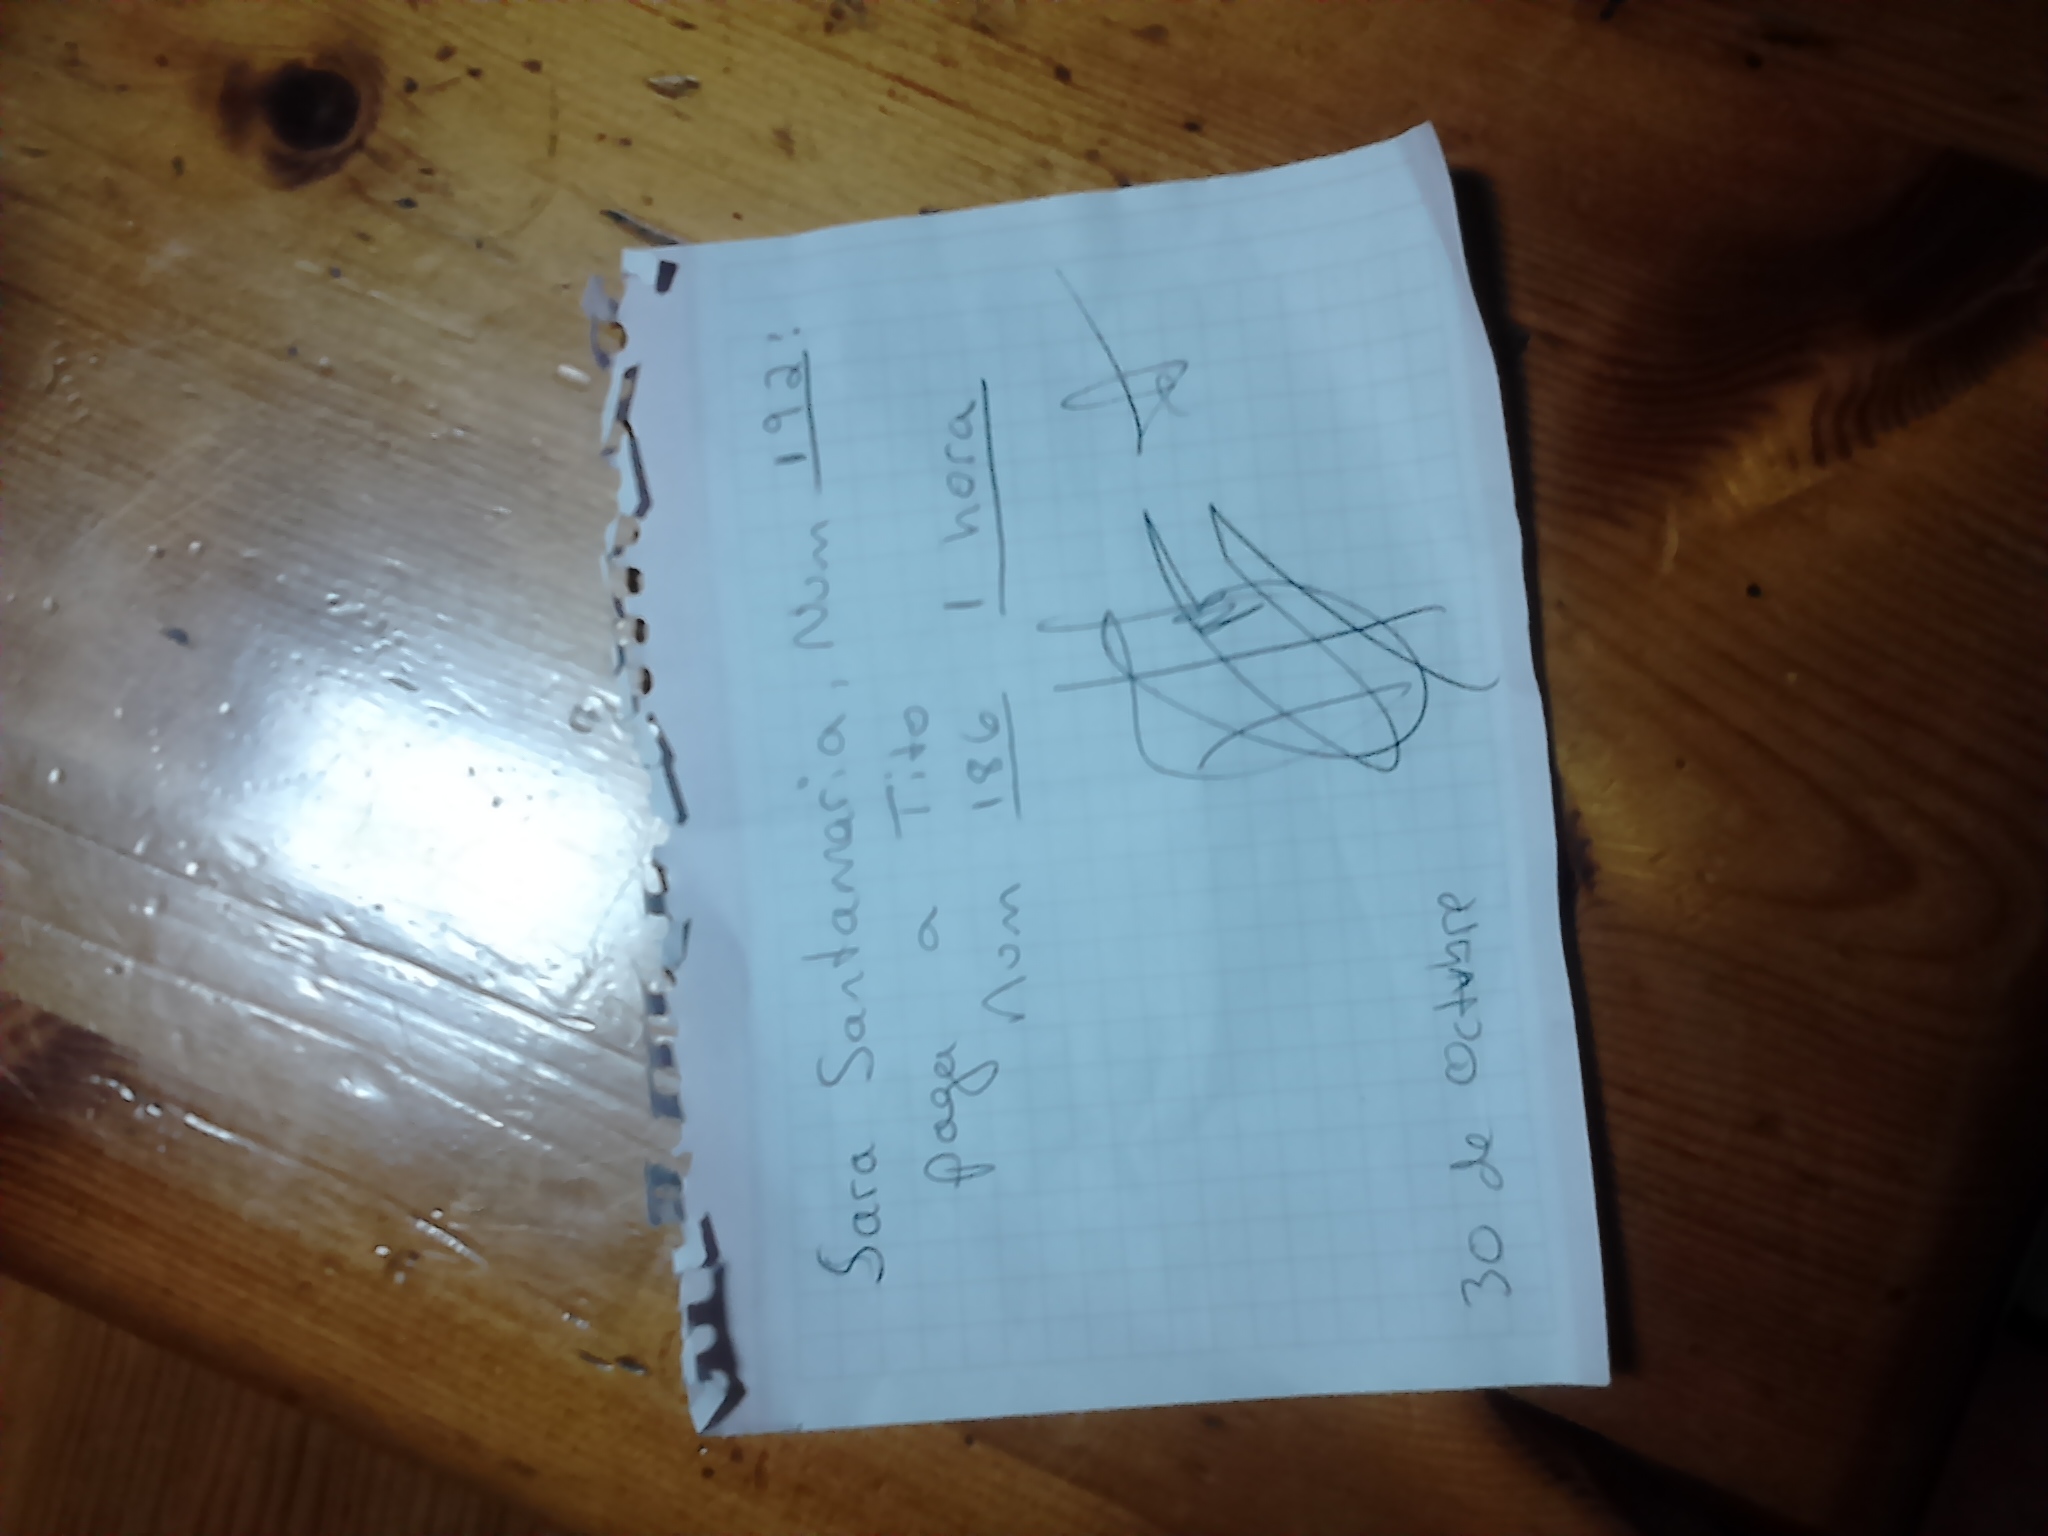 Sara Santamaria, Num 192:
paga a Tito
Num 186 1 hora
30 de Octubre